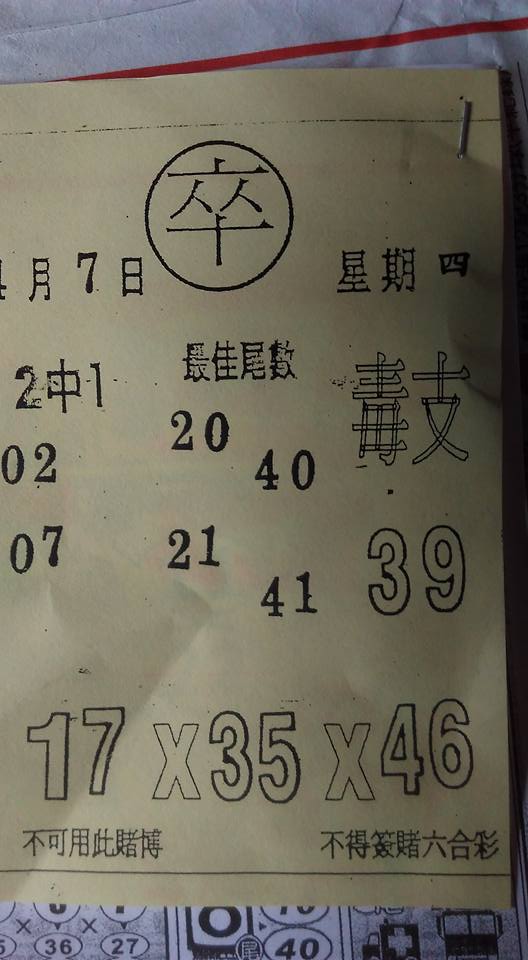 卒
4月7日 星期四
2中1 最佳尾數 毒支
02 20 40
07 21 41 39
17 X 35 X 46
不可用此賭博 不得簽賭六合彩
36 27 尾 40